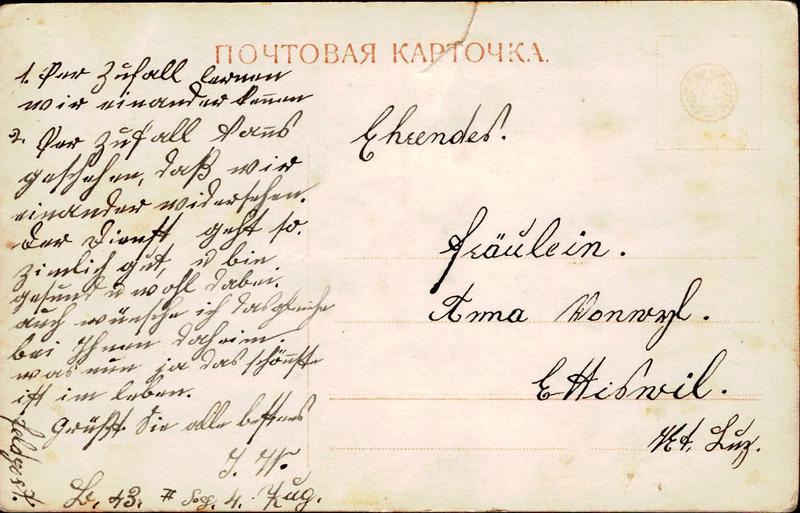 ПОЧТОВАЯ КАРТОЧКА.
1. Per Zufall lernen
wir einander kennen
2. Per Zufall kanns
geschehen, daß wir
einander widersehen.
Der Dienst geht so.
zimlich gut, u bin
gesund u wohl dabei.
auch wünsche ich dasgleiche
bei Ihnen daheim.
was nun ja das schönste
ist im leben.
Grüßt Sie alle bestens
J. W.
43. II 4. Zug.
Feldpost.
Ehrendes.
Fräulein.
Anna Vonwyl.
Ettiswil.
Kt. Luz.